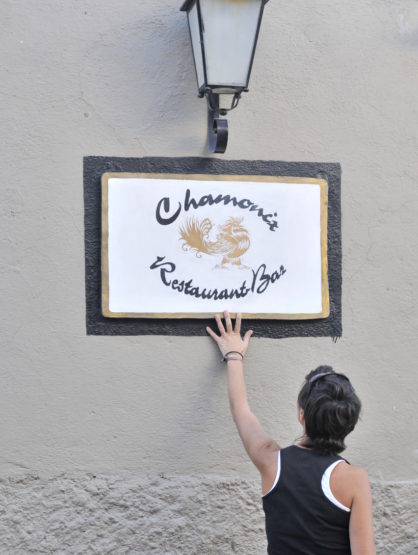 Chamonix
Restaurant-Bar